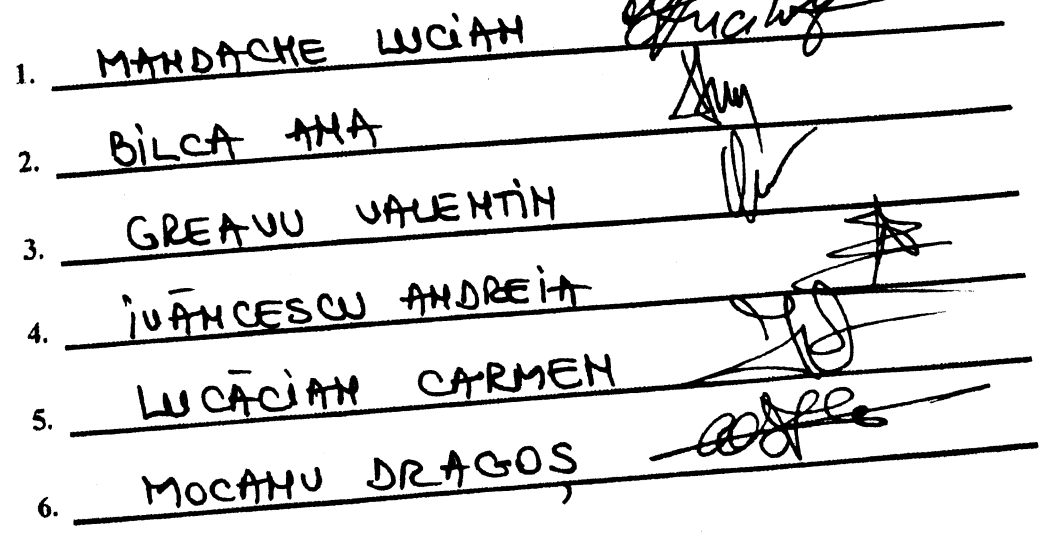 1. MANDACHE LUCIAN
2. BILCA ANA
3. GREAVU VALENTIN
4. IVĂNCESCU ANDREIA
5. LUCĂCIAN CARMEN
6. MOCANU DRAGOȘ